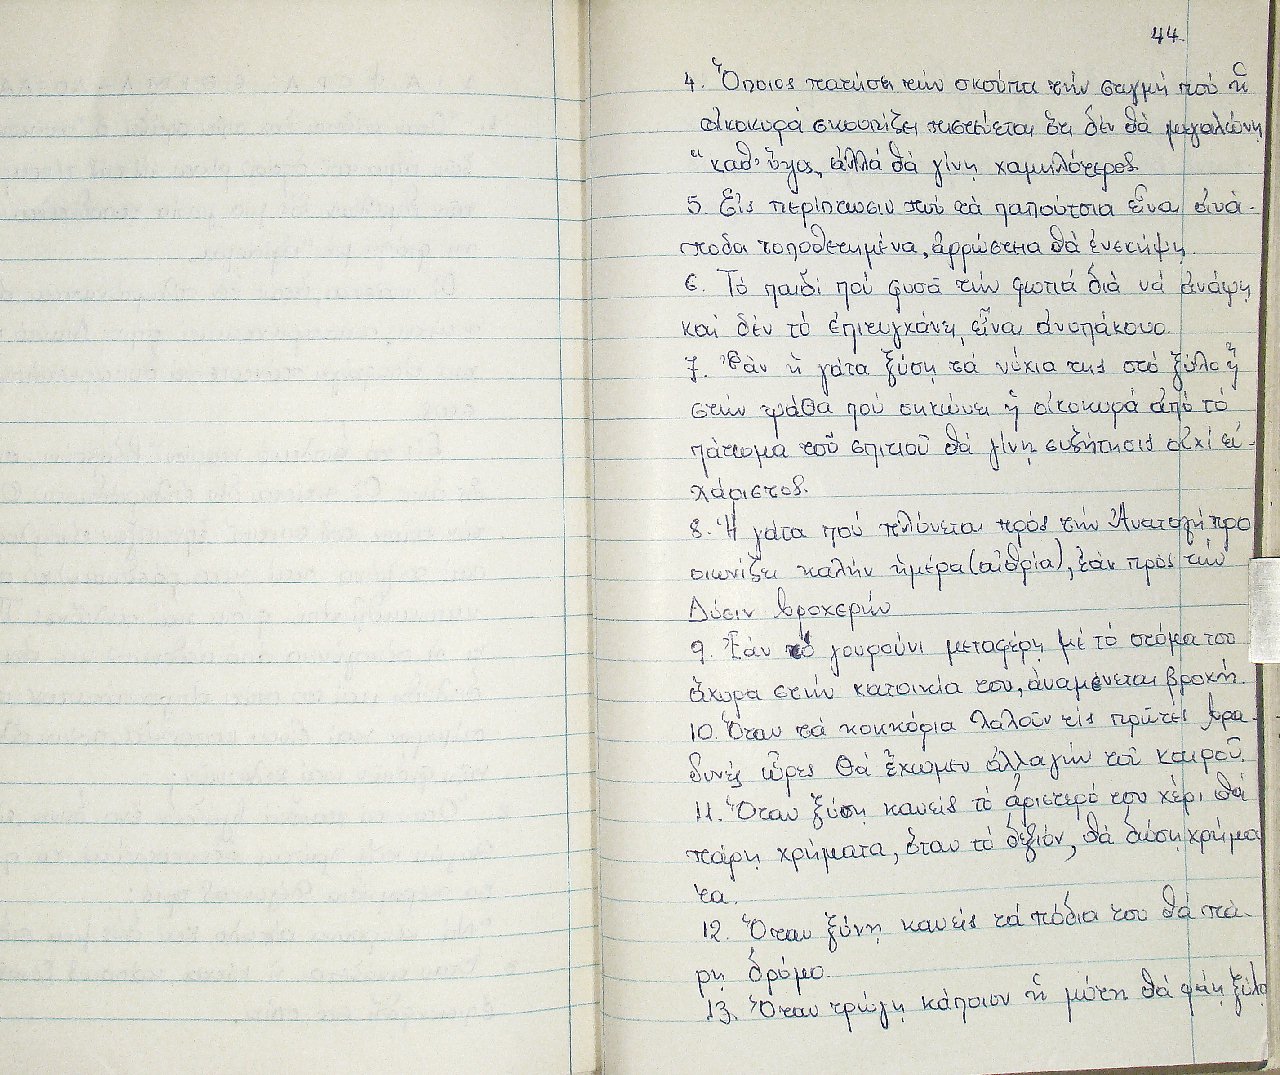 44.
4. Ὅποιος πατήσει τήν σκούπα τήν στιγμή πού ἡ
οἰκοκυρά σκουπίζει πιστεύεται ὅτι δέν θά μεγαλώνη
καθ' ὕψος, ἀλλά θά γίνη χαμηλότερος
5. Εἰς περίπτωσιν πού τά παπούτσια εἶναι ἀνά-
ποδα τοποθετημένα, ἀρρώστια θά ἐνσκήψη.
6. Τό παιδί πού φυσᾶ τήν φωτιά διά νά ἀνάψη
καί δέν τό ἐπιτυγχάνει, εἶναι ἀνυπάκουο.
7. Ἐάν ἡ γάτα ξύση τά νύχια της στό ξύλο ἤ
στήν ψάθα πού σηκώνει ἡ οἰκοκυρά ἀπό τό
πάτωμα τοῦ σπιτιοῦ θά γίνη συζήτησις οὐχί εὐ-
χάριστος.
8. Ἡ γάτα πού πλύνεται πρός τήν Ἀνατολή προ
οιωνίζει καλήν ἡμέρα (αἰθρία), ἐάν πρός τήν
Δύσιν βροχερήν
9. Ἐάν τό γουρούνι μεταφέρη μέ τό στόμα του
ἄχυρα στήν κατοικία του, ἀναμένεται βροχή.
10. Ὅταν τά κοκκόρια λαλοῦν τίς πρῶτες βρα-
δυνές ὧρες θά ἔχωμεν ἀλλαγήν τοῦ καιροῦ.
11. Ὅταν ξύση κανείς τό ἀριστερό του χέρι θά
πάρη χρήματα, ὅταν τό δεξιόν, θά δώση χρήμα
τα.
12. Ὅταν ξύνη κανείς τά πόδια του θά πά-
ρη δρόμο.
13. Ὅταν τρώγη κάποιον ἡ μύτη θά φάη ξύλο